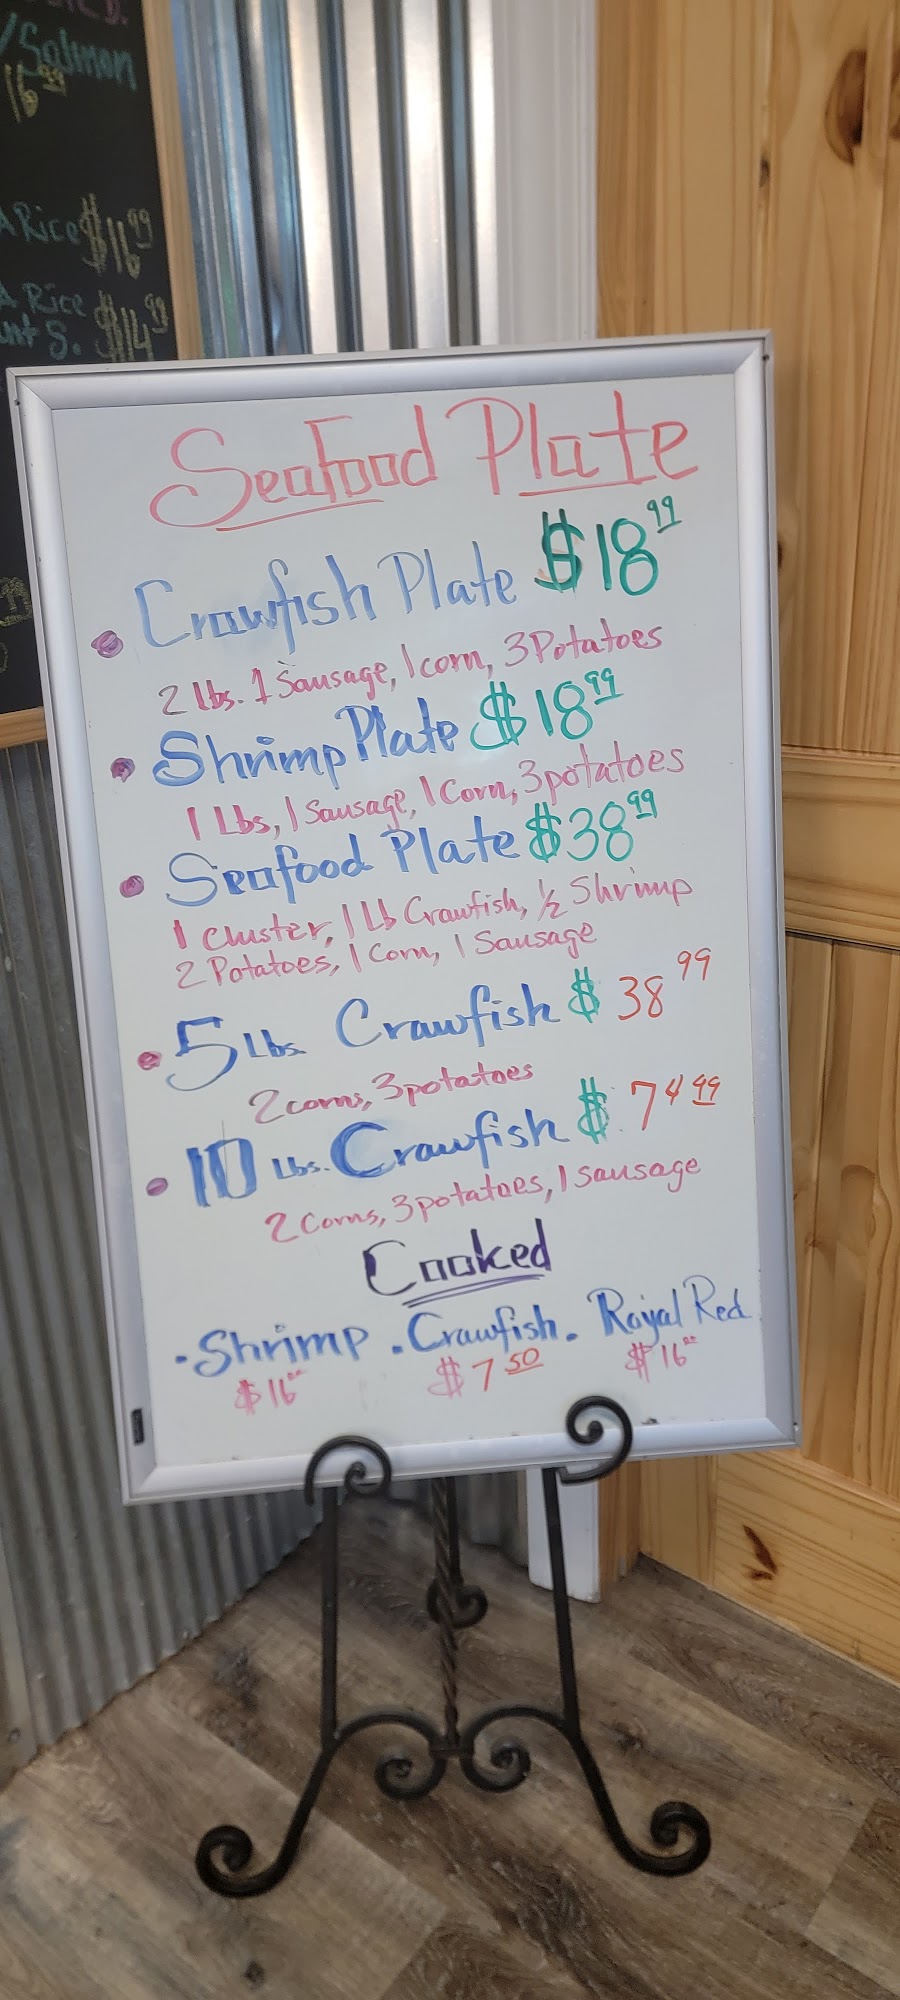 /Salmon
16.99
A Rice $16.99
A Rice
$14.99
Seafood Plate
• Crawfish Plate $18.99
2 lbs. 1 Sausage, 1 corn, 3 Potatoes
• Shrimp Plate $18.99
1 Lbs, 1 Sausage, 1 Corn, 3 potatoes
• Seafood Plate $38.99
1 Cluster, 1 Lb Crawfish, ½ Shrimp
2 Potatoes, 1 Corn, 1 Sausage
• 5 Lbs. Crawfish $38.99
2 corns, 3 potatoes
• 10 Lbs. Crawfish $74.99
2 Corns, 3 potatoes, 1 sausage
Cooked
• Shrimp • Crawfish • Royal Red
$16.00 $7.50 $16.00